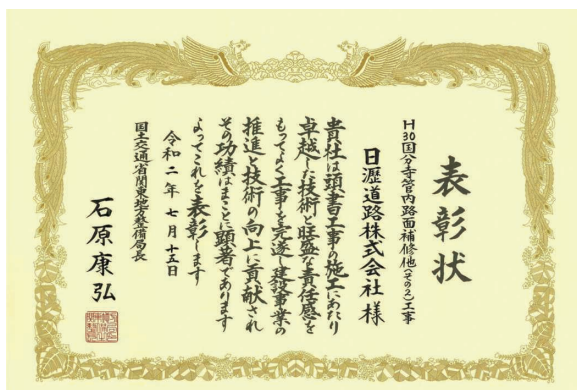 表彰状
H30国分寺管内路面補修他(その2)工事
日瀝道路株式会社 様
貴社は頭書工事の施工にあたり
卓越した技術と旺盛な責任感を
もってよく工事を完遂し建設事業の
推進と技術の向上に貢献され
その功績はまことに顕著であります
よってこれを表彰します
令和二年七月十五日
国土交通省関東地方整備局長
石原康弘